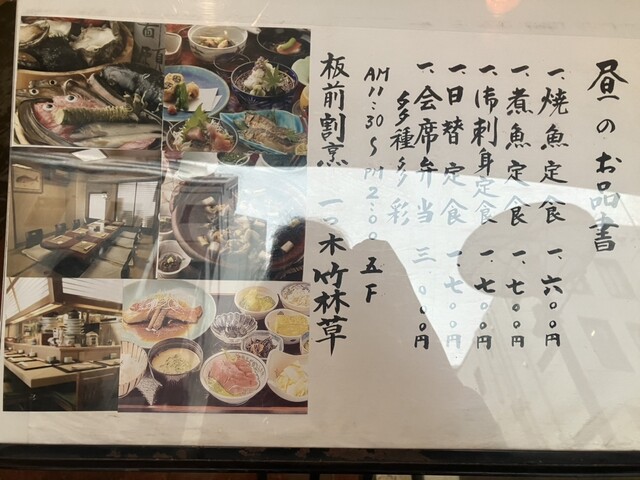 昼のお品書
一、焼魚定食 一、六〇〇円
一、煮魚定食 一、七〇〇円
一、御刺身定食 一、七〇〇円
一、日替定食 一、七〇〇円
一、会席弁当 三、〇〇〇円
多種多彩
AM11:30〜PM2:00 五F
板前割烹 一つ木 竹林草